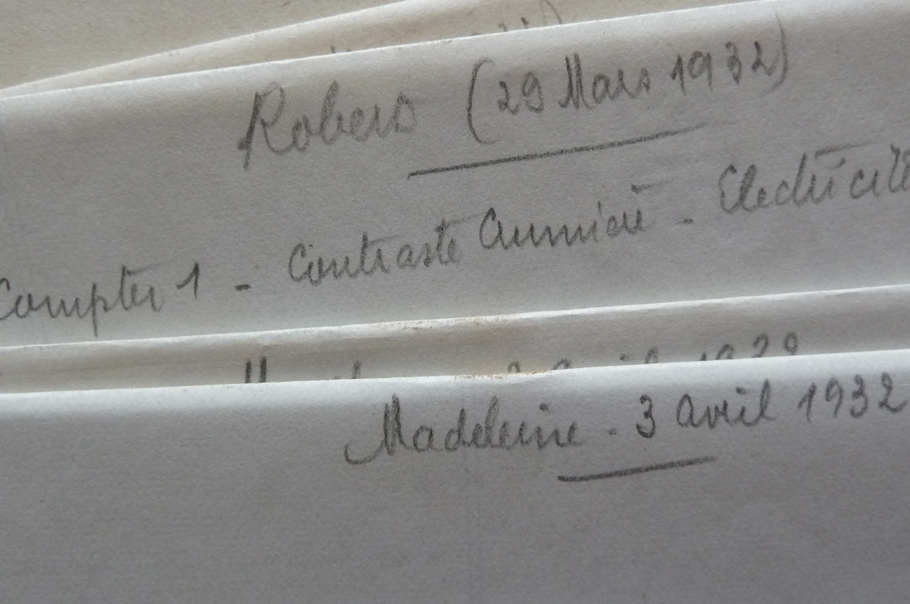 Robers (29 Mars 1932)
Compter 1 - Contraste Lumière - Electricité
Madeleine - 3 avril 1932